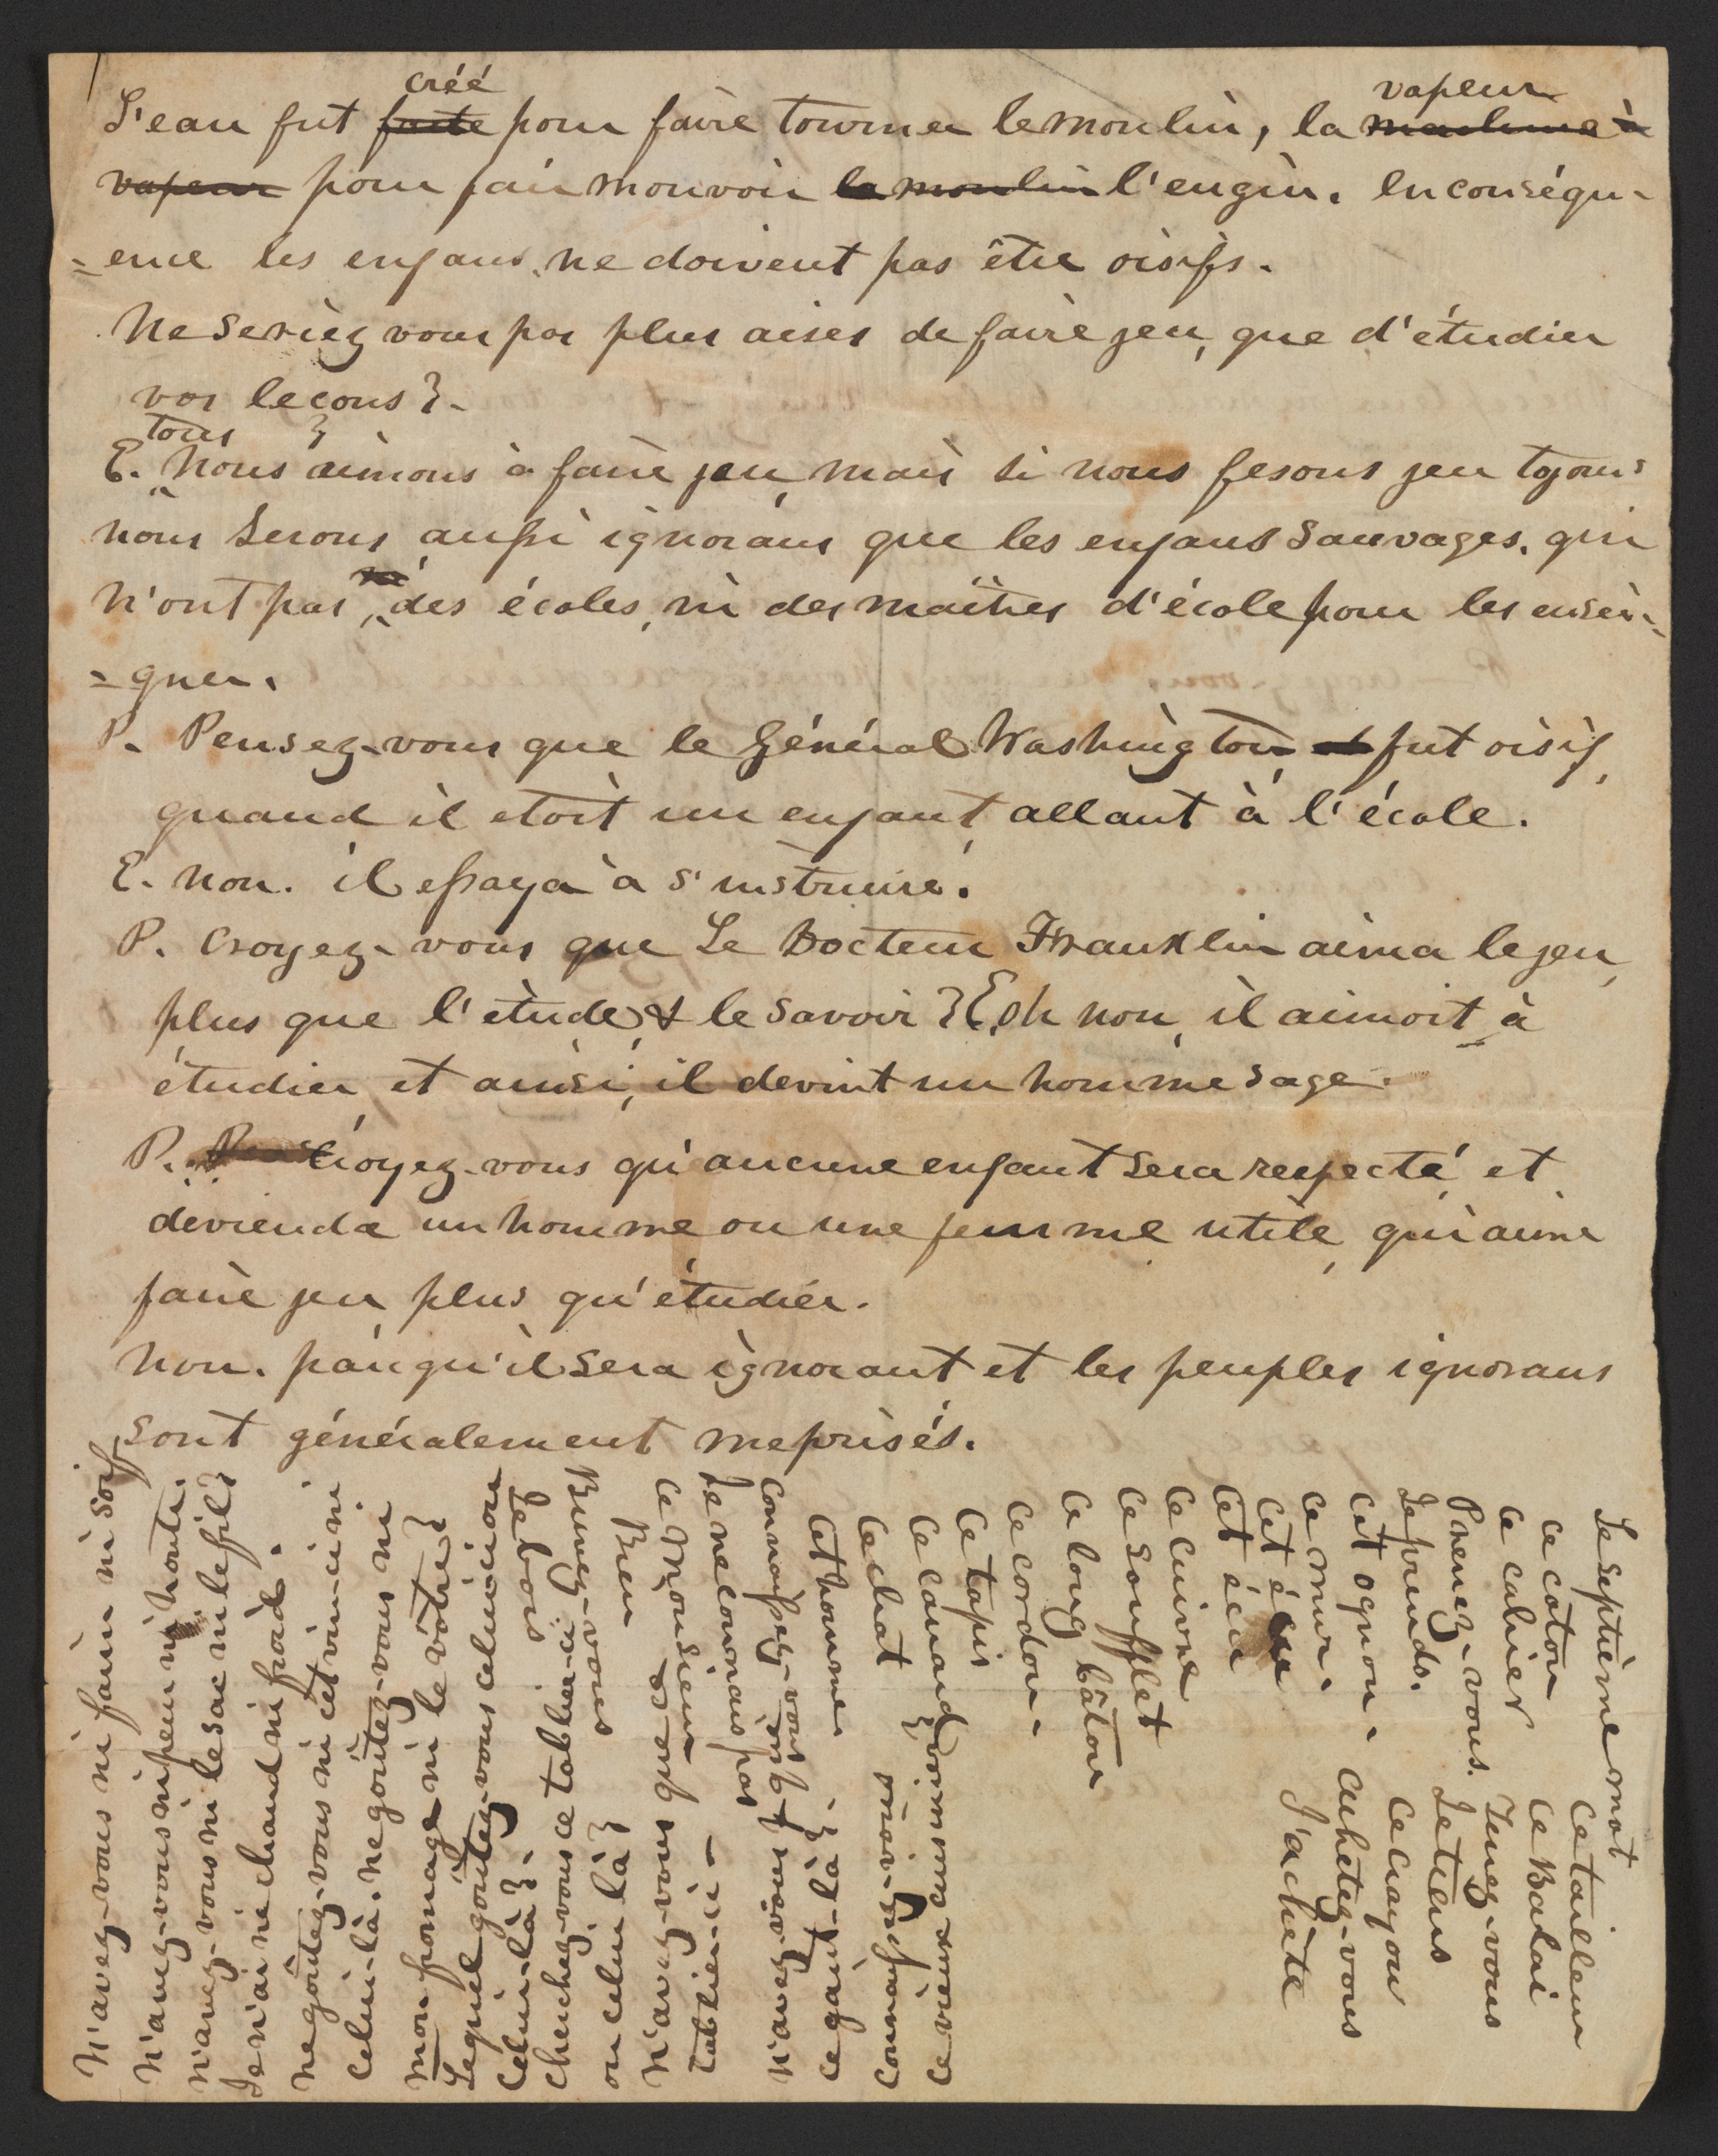 créé vapeur
L'eau fut faite pour faire tourner le moulin, la machine à
vapeur pour fair mouvoir le moulin l'engin. En conséqu-
=ence les enfans ne doivent pas être oisifs.
Ne seriez vous pas plus aises de faire jeu, que d'étudier
vos leçons?-
tous
E. Nous aimons à faire jeu, mais si nous fesons jeu tojours
nous serons aussi ignorans que les enfans sauvages, qui
n'ont pas, des écoles, ni des maîtres d'école pour les ensei-
=gner.
P. Pensez-vous que le Général Washington fut oisif,
quand il etoit un enfant allant à l'école.
E. non. il essaya à s'instruire.
P. Croyez-vous que Le Docteur Franklin aima le jeu,
plus que l'etude & le savoir? E. oh non, il aimoit à
étudier, et ainsi, il devint un homme sage.
P. Croyez-vous qu'aucune enfant sera respecté, et
devienda un homme ou une femme utile, qui aime
faire jeu plus qu'étudier.
Non. parcqu'il sera ignorant et les peuples ignorans
sont généralement meprisés.
N'avez-vous ni faim ni soif
N'avez-vous ni peur ni honte.
N'avez-vous ni le sac ni le fil?
Je n'ai ni chaud ni froid.
Ne goûtez-vous ni cet vin-ci ni
celui-là. Ne goûtez-vous ni
mon fromage ni le vôtre?
Lequel goûtez-vous celui-ci ou
celui-là?.
Cherchez-vous ce tablier-ci
ou celui là?
Buvez-vous
Bien
N'avez-vous que ce
tablier-ci-
Ce Monsieur
Je ne connais pas
N'avez-vous que
ce gant-là?.
Connaissez-vous
Cet homme
Connaissez-vous
Ce chat
ce vieux cuisinier
Ce canard?
Ce tapis
Ce cordon.
Ce long bâton
Ce soufflet
Ce cuivre
Cet écu
Cet écu
J'achète
ce mur.
Achetez-vous
Cet ognon.
Ce crayon
Je prends.
Je tiens
Prenez-vous.
Tenez-vous
Ce cahier
Ce Balai
Ce coton
Ce tailleur
Le septième mot